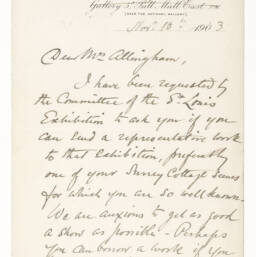 Gallery 5ᴬ Pall Mall East
(near the National Gallery)
Novr 18th 1903
Dear Mrs Allingham,
I have been requested by
the Committee of the St Louis
Exhibition to ask you if you
can send a representative work
to that Exhibition, preferably
one of your Surrey Cottage Scenes
for which you are so well known.
We are anxious to get as good
a show as possible - Perhaps
you can borrow a work if you